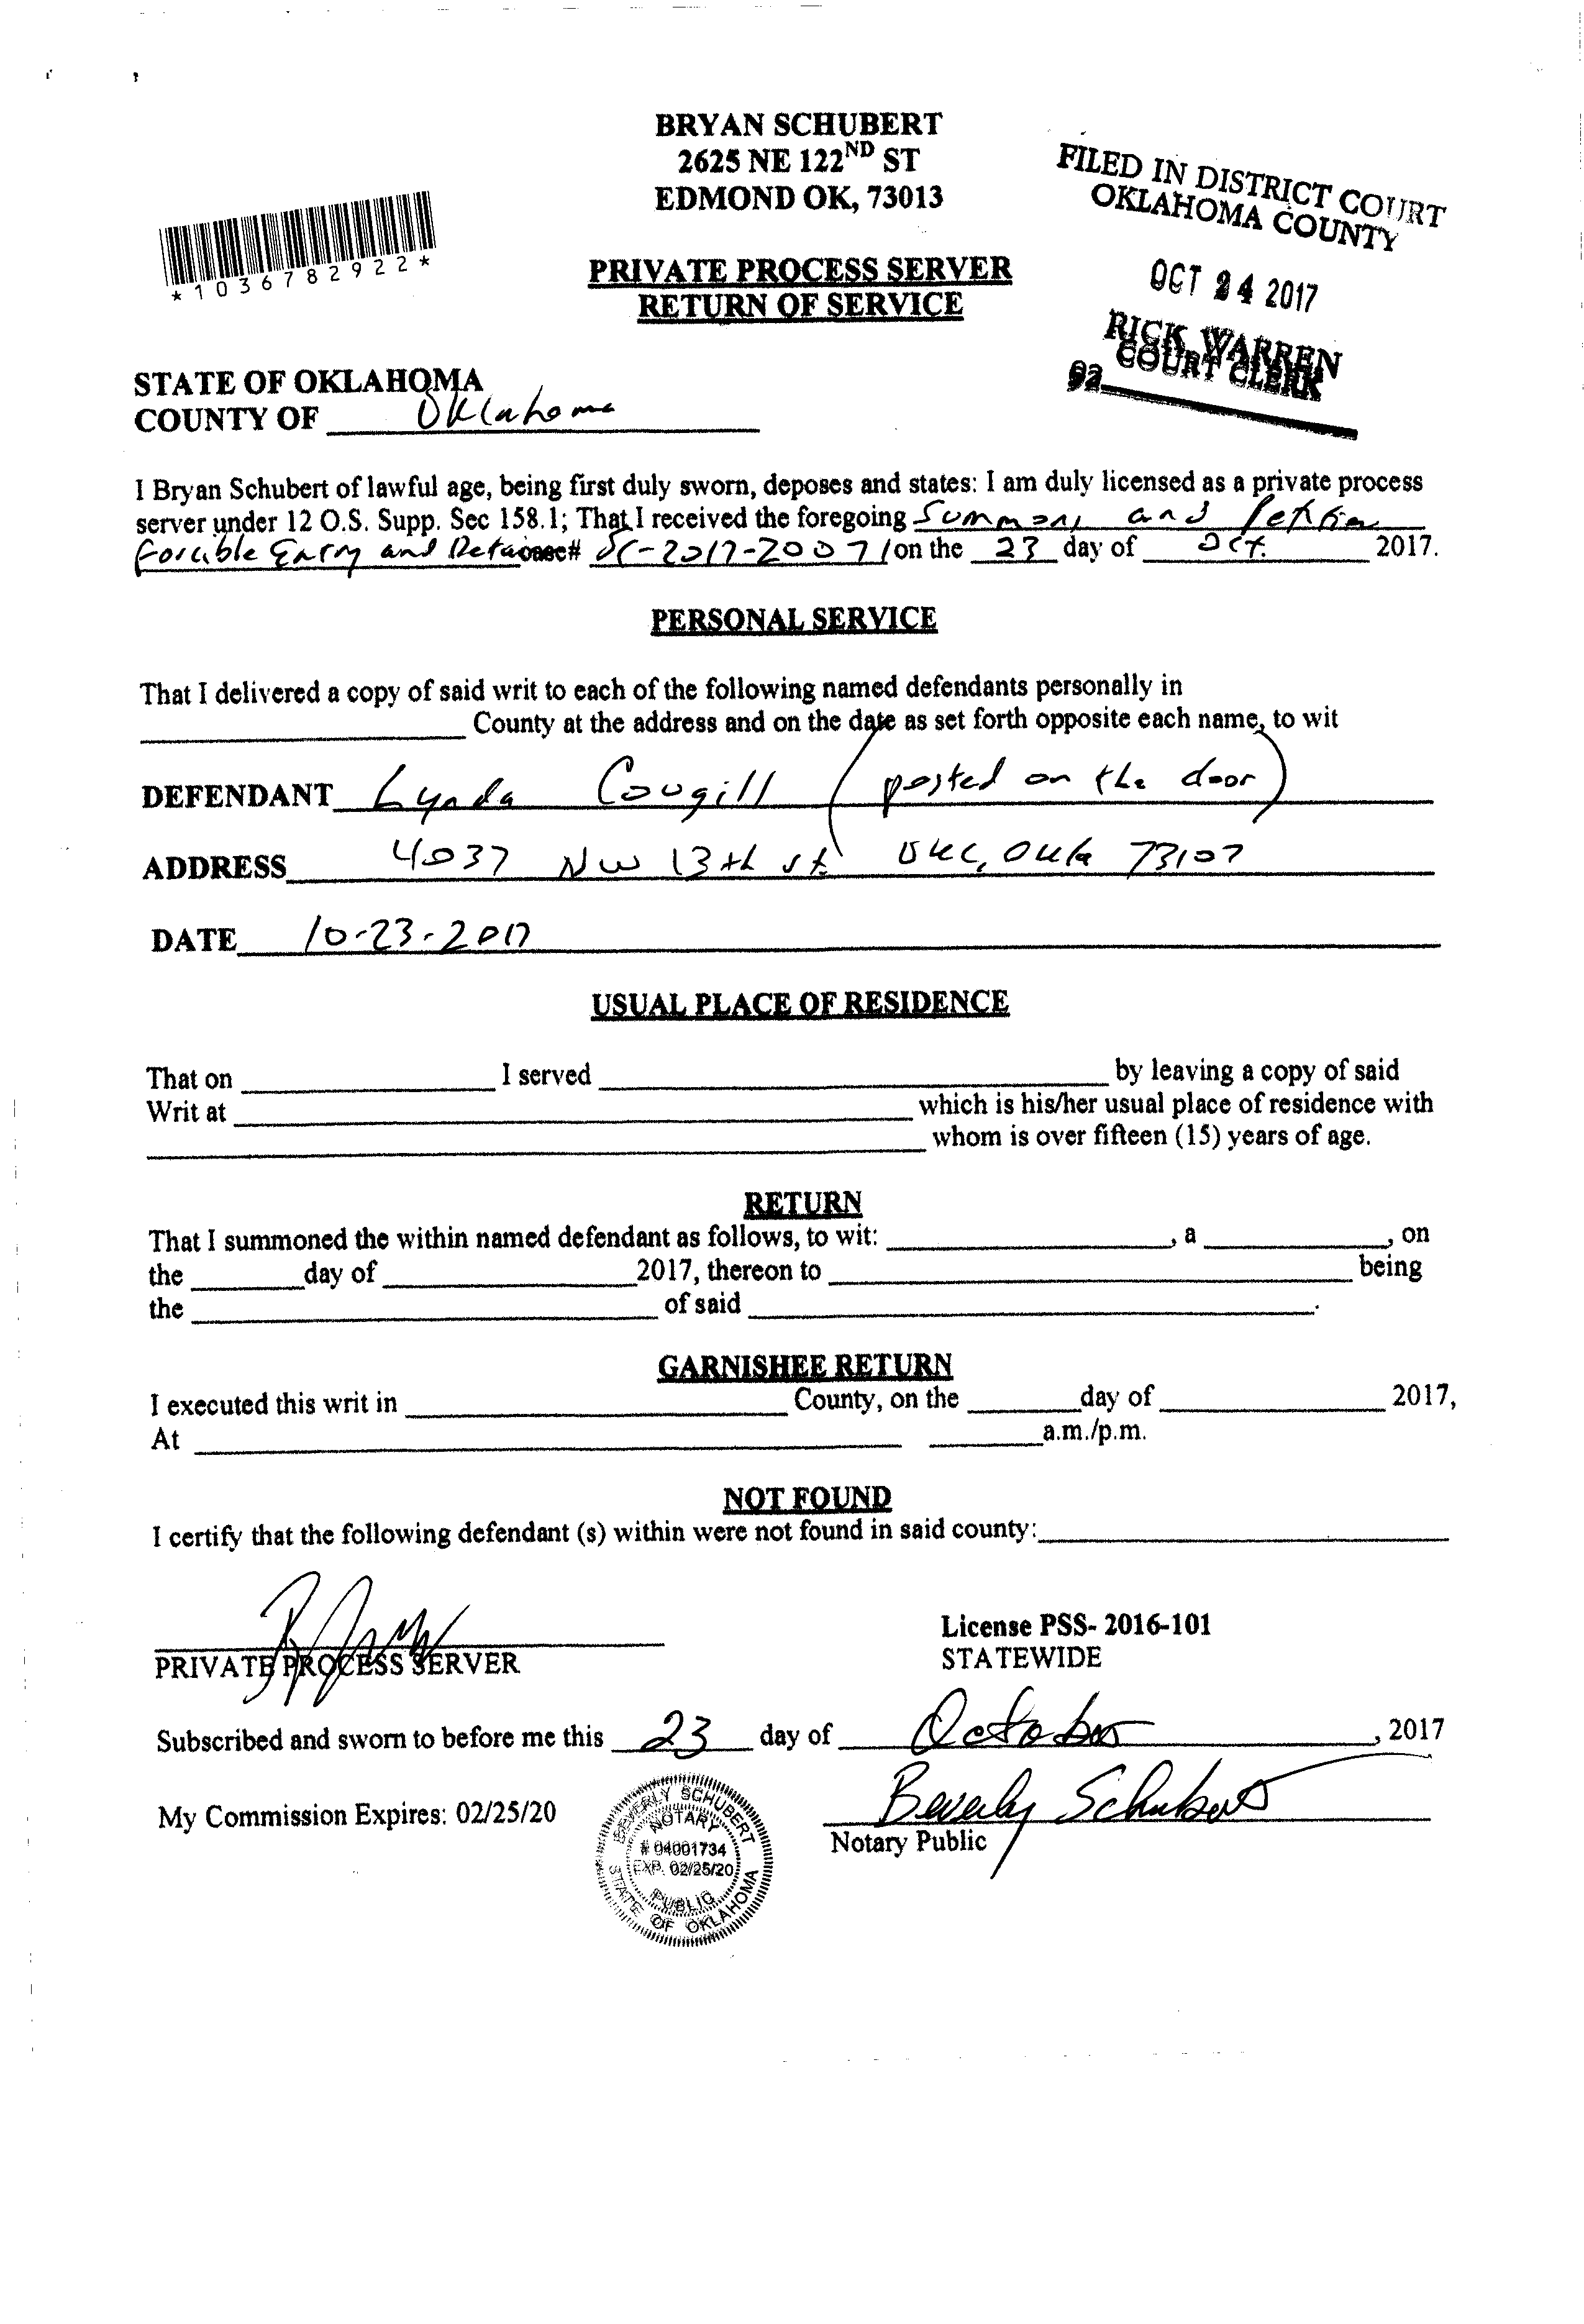 BRYAN SCHUBERT
2625 NE 122ND ST
EDMOND OK, 73013
FILED IN DISTRICT COURT
OKLAHOMA COUNTY
OCT 24 2017
RICK WARREN
COURT CLERK
92
*1036782922*
PRIVATE PROCESS SERVER
RETURN OF SERVICE
STATE OF OKLAHOMA
COUNTY OF Oklahoma
I Bryan Schubert of lawful age, being first duly sworn, deposes and states: I am duly licensed as a private process
server under 12 O.S. Supp. Sec 158.1; That I received the foregoing Summons and Petition
Forcible Entry and Detainer case# SC-2017-20071 on the 23 day of Oct. 2017.
PERSONAL SERVICE
That I delivered a copy of said writ to each of the following named defendants personally in
County at the address and on the date as set forth opposite each name, to wit
DEFENDANT Lynda Cowgill (posted on the door)
ADDRESS 4037 NW 13th st OKC, Okla 73107
DATE 10-23-2017
USUAL PLACE OF RESIDENCE
That on I served by leaving a copy of said
Writ at which is his/her usual place of residence with
whom is over fifteen (15) years of age.
RETURN
That I summoned the within named defendant as follows, to wit: , a , on
the day of 2017, thereon to being
the of said .
GARNISHEE RETURN
I executed this writ in County, on the day of 2017,
At a.m./p.m.
NOT FOUND
I certify that the following defendant (s) within were not found in said county:
PRIVATE PROCESS SERVER
License PSS- 2016-101
STATEWIDE
Subscribed and sworn to before me this 23 day of October, 2017
My Commission Expires: 02/25/20
Beverly Schubert
Notary Public
BEVERLY SCHUBERT
NOTARY
# 04001734
EXP. 02/25/20
PUBLIC
STATE OF OKLAHOMA